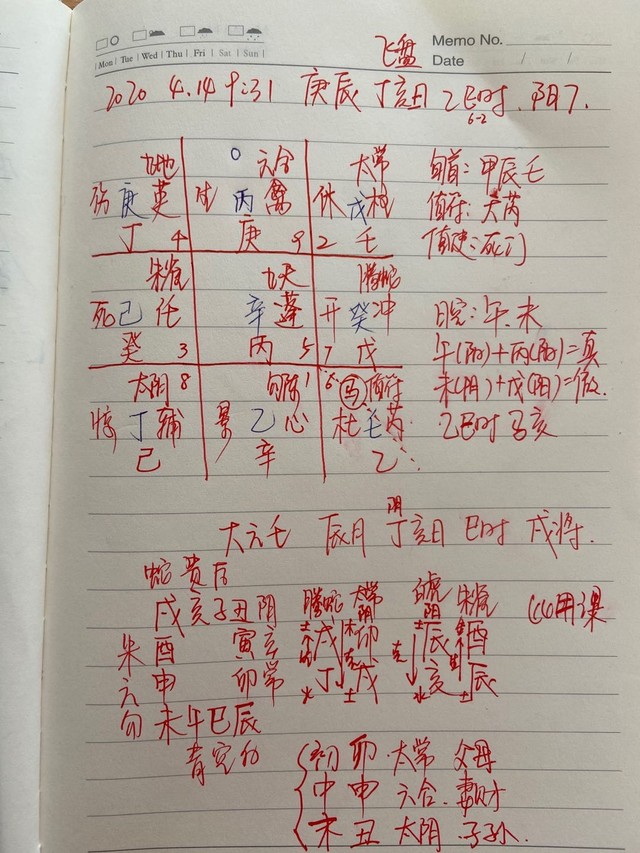 飞盘 Memo No.
Mon | Tue | Wed | Thu | Fri | Sat | Sun | Date / /
2020 4.14 9:31 庚辰 丁亥日 乙巳时 阴7.
6-2
九地 六合 太常 旬首:甲辰壬
伤庚英 生丙禽 休戊柱 值符:天芮
丁4 庚9 2壬 值使:死门
朱雀 九天 螣蛇
死己任 辛蓬 开癸冲 日空:午.未
癸3 丙5 7戊 午(阳)+丙(阳)=真
太阴8 勾陈1 6马值符 未(阴)+戊(阳)=假
惊丁辅 景乙心 杜壬芮 乙巳时 马亥
己 辛 乙
阴
大六壬 辰月 丁亥日 巳时 戌将.
蛇贵后
戌亥子丑阴 螣蛇 太常 白虎 朱雀
朱酉 寅玄 戌 卯 辰 酉 用课
六申 卯常 丁 戌 亥 辰
勾未午巳辰
青空白
初 卯 太常 父母
中 申 六合 妻财
末 丑 太阴 子孙